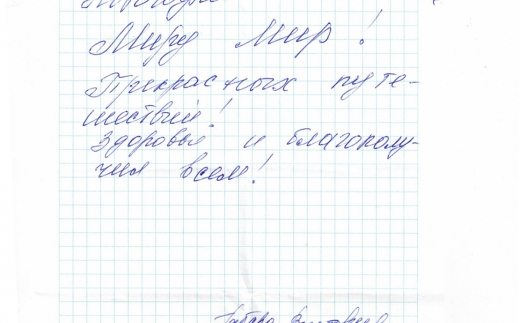 Миру мир!
Прекрасных путе-
шествий!
Здоровья и благополу-
чия всем!